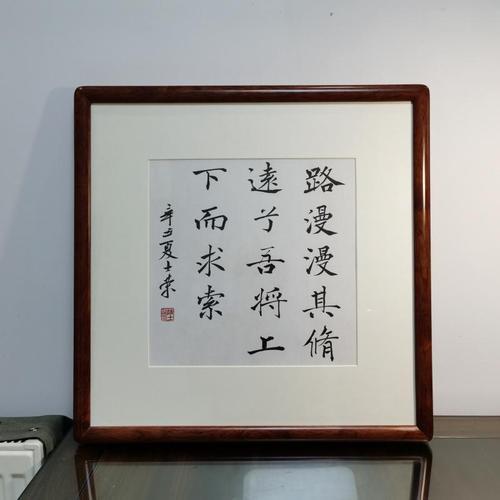 路漫漫其脩
遠兮吾将上
下而求索
辛丑夏士荣